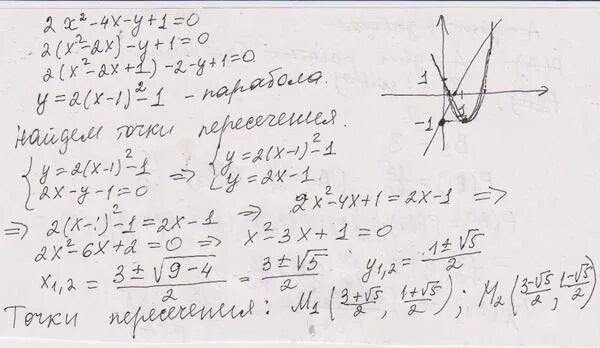 2x²-4x-y+1=0
2(x²-2x)-y+1=0
2(x²-2x+1)-2-y+1=0
y=2(x-1)²-1 - парабола.
Найдем точки пересечения.
{y=2(x-1)²-1 {y=2(x-1)²-1
{2x-y-1=0 => {y=2x-1
=> 2(x-1)²-1=2x-1 => 2x²-4x+1=2x-1 =>
2x²-6x+2=0 => x²-3x+1=0
x1,2 = (3±√(9-4))/2 = (3±√5)/2 y1,2 = (1±√5)/2
Точки пересечения: M1((3+√5)/2, (1+√5)/2); M2((3-√5)/2, (1-√5)/2)
1
1
-1